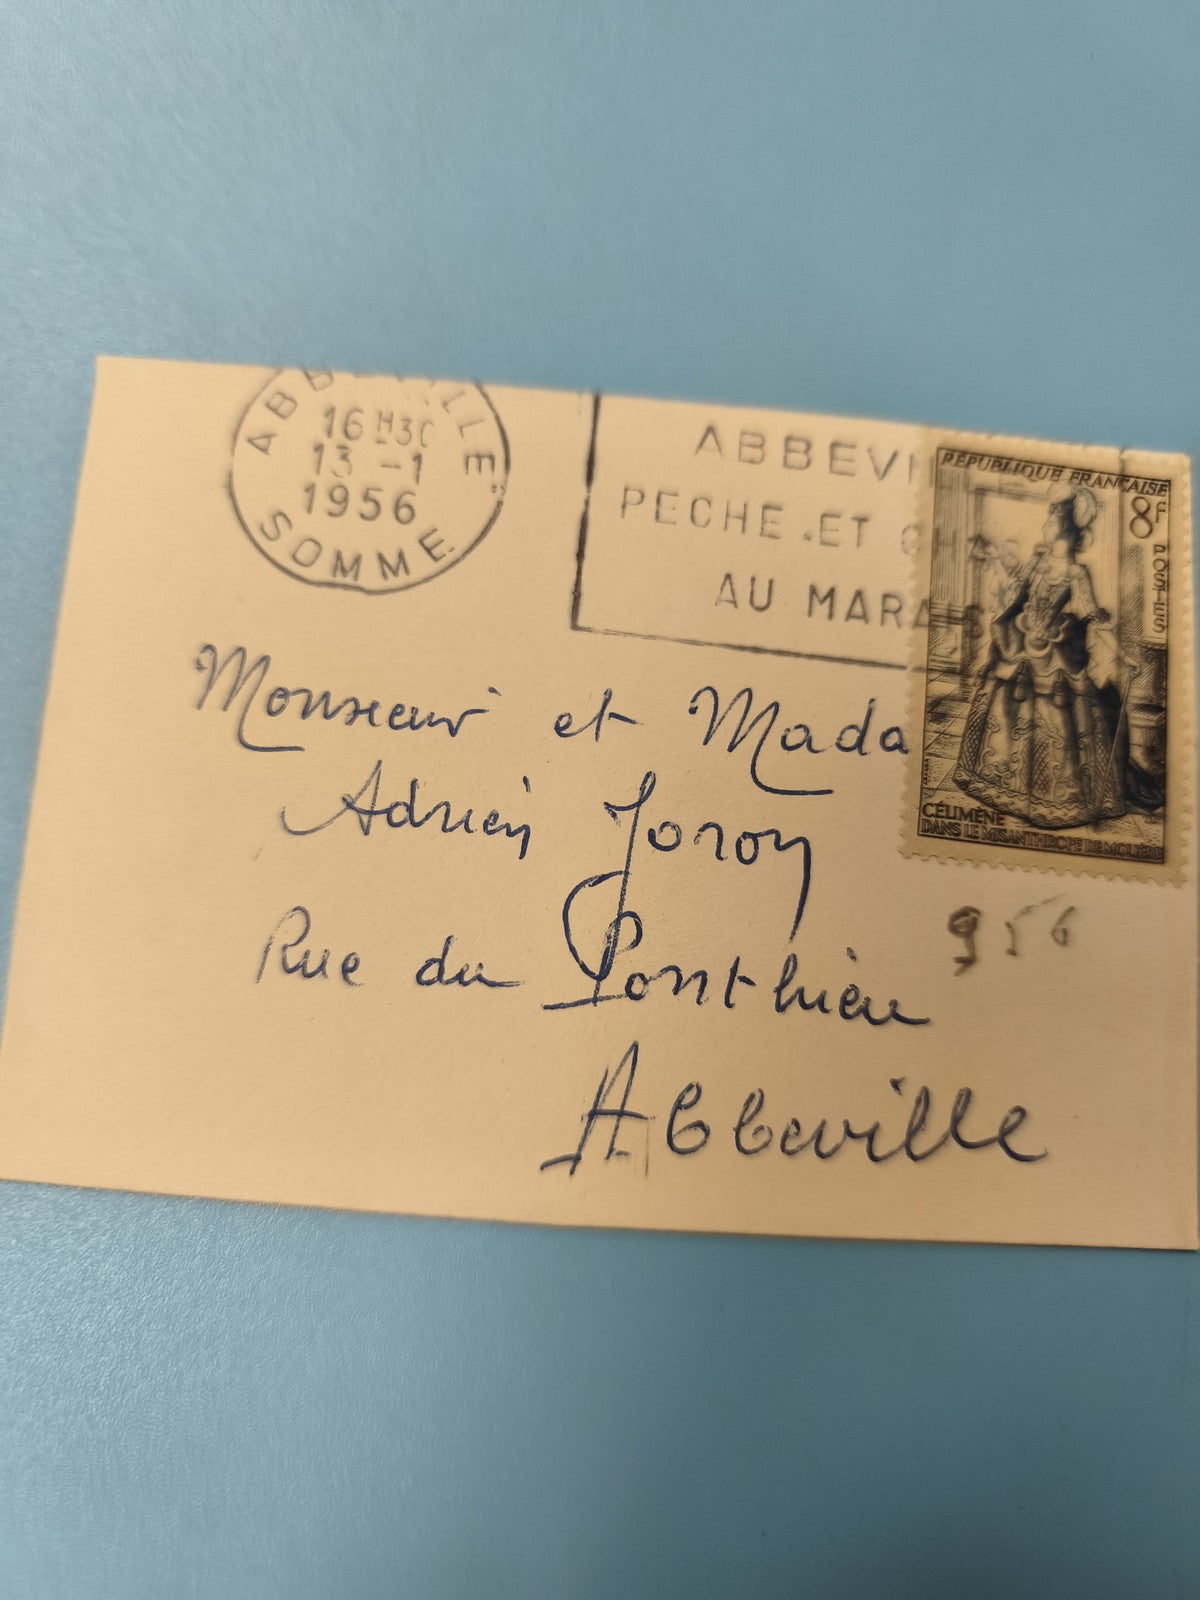 ABBEVILLE
16H30
13 -1
1956
SOMME
ABBEVI
PECHE ET CHAS
AU MARAIS
REPUBLIQUE FRANÇAISE
8F
POSTES
CÉLIMÈNE
DANS LE MISANTHROPE DE MOLIÈRE
Monsieur et Mada
Adrien Joron
Rue du Ponthieu
Abbeville
956